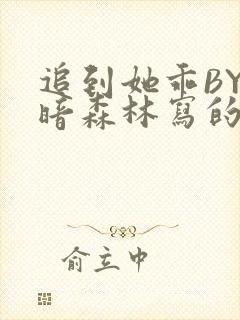 追到她乖BY
暗森林寫的
俞立中